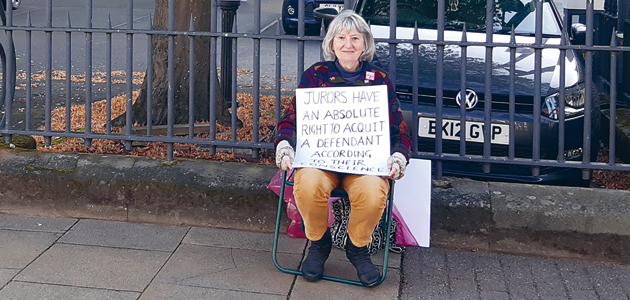 JURORS HAVE
AN ABSOLUTE
RIGHT TO ACQUIT
A DEFENDANT
ACCORDING
TO THEIR
CONSCIENCE
BX12 GYP